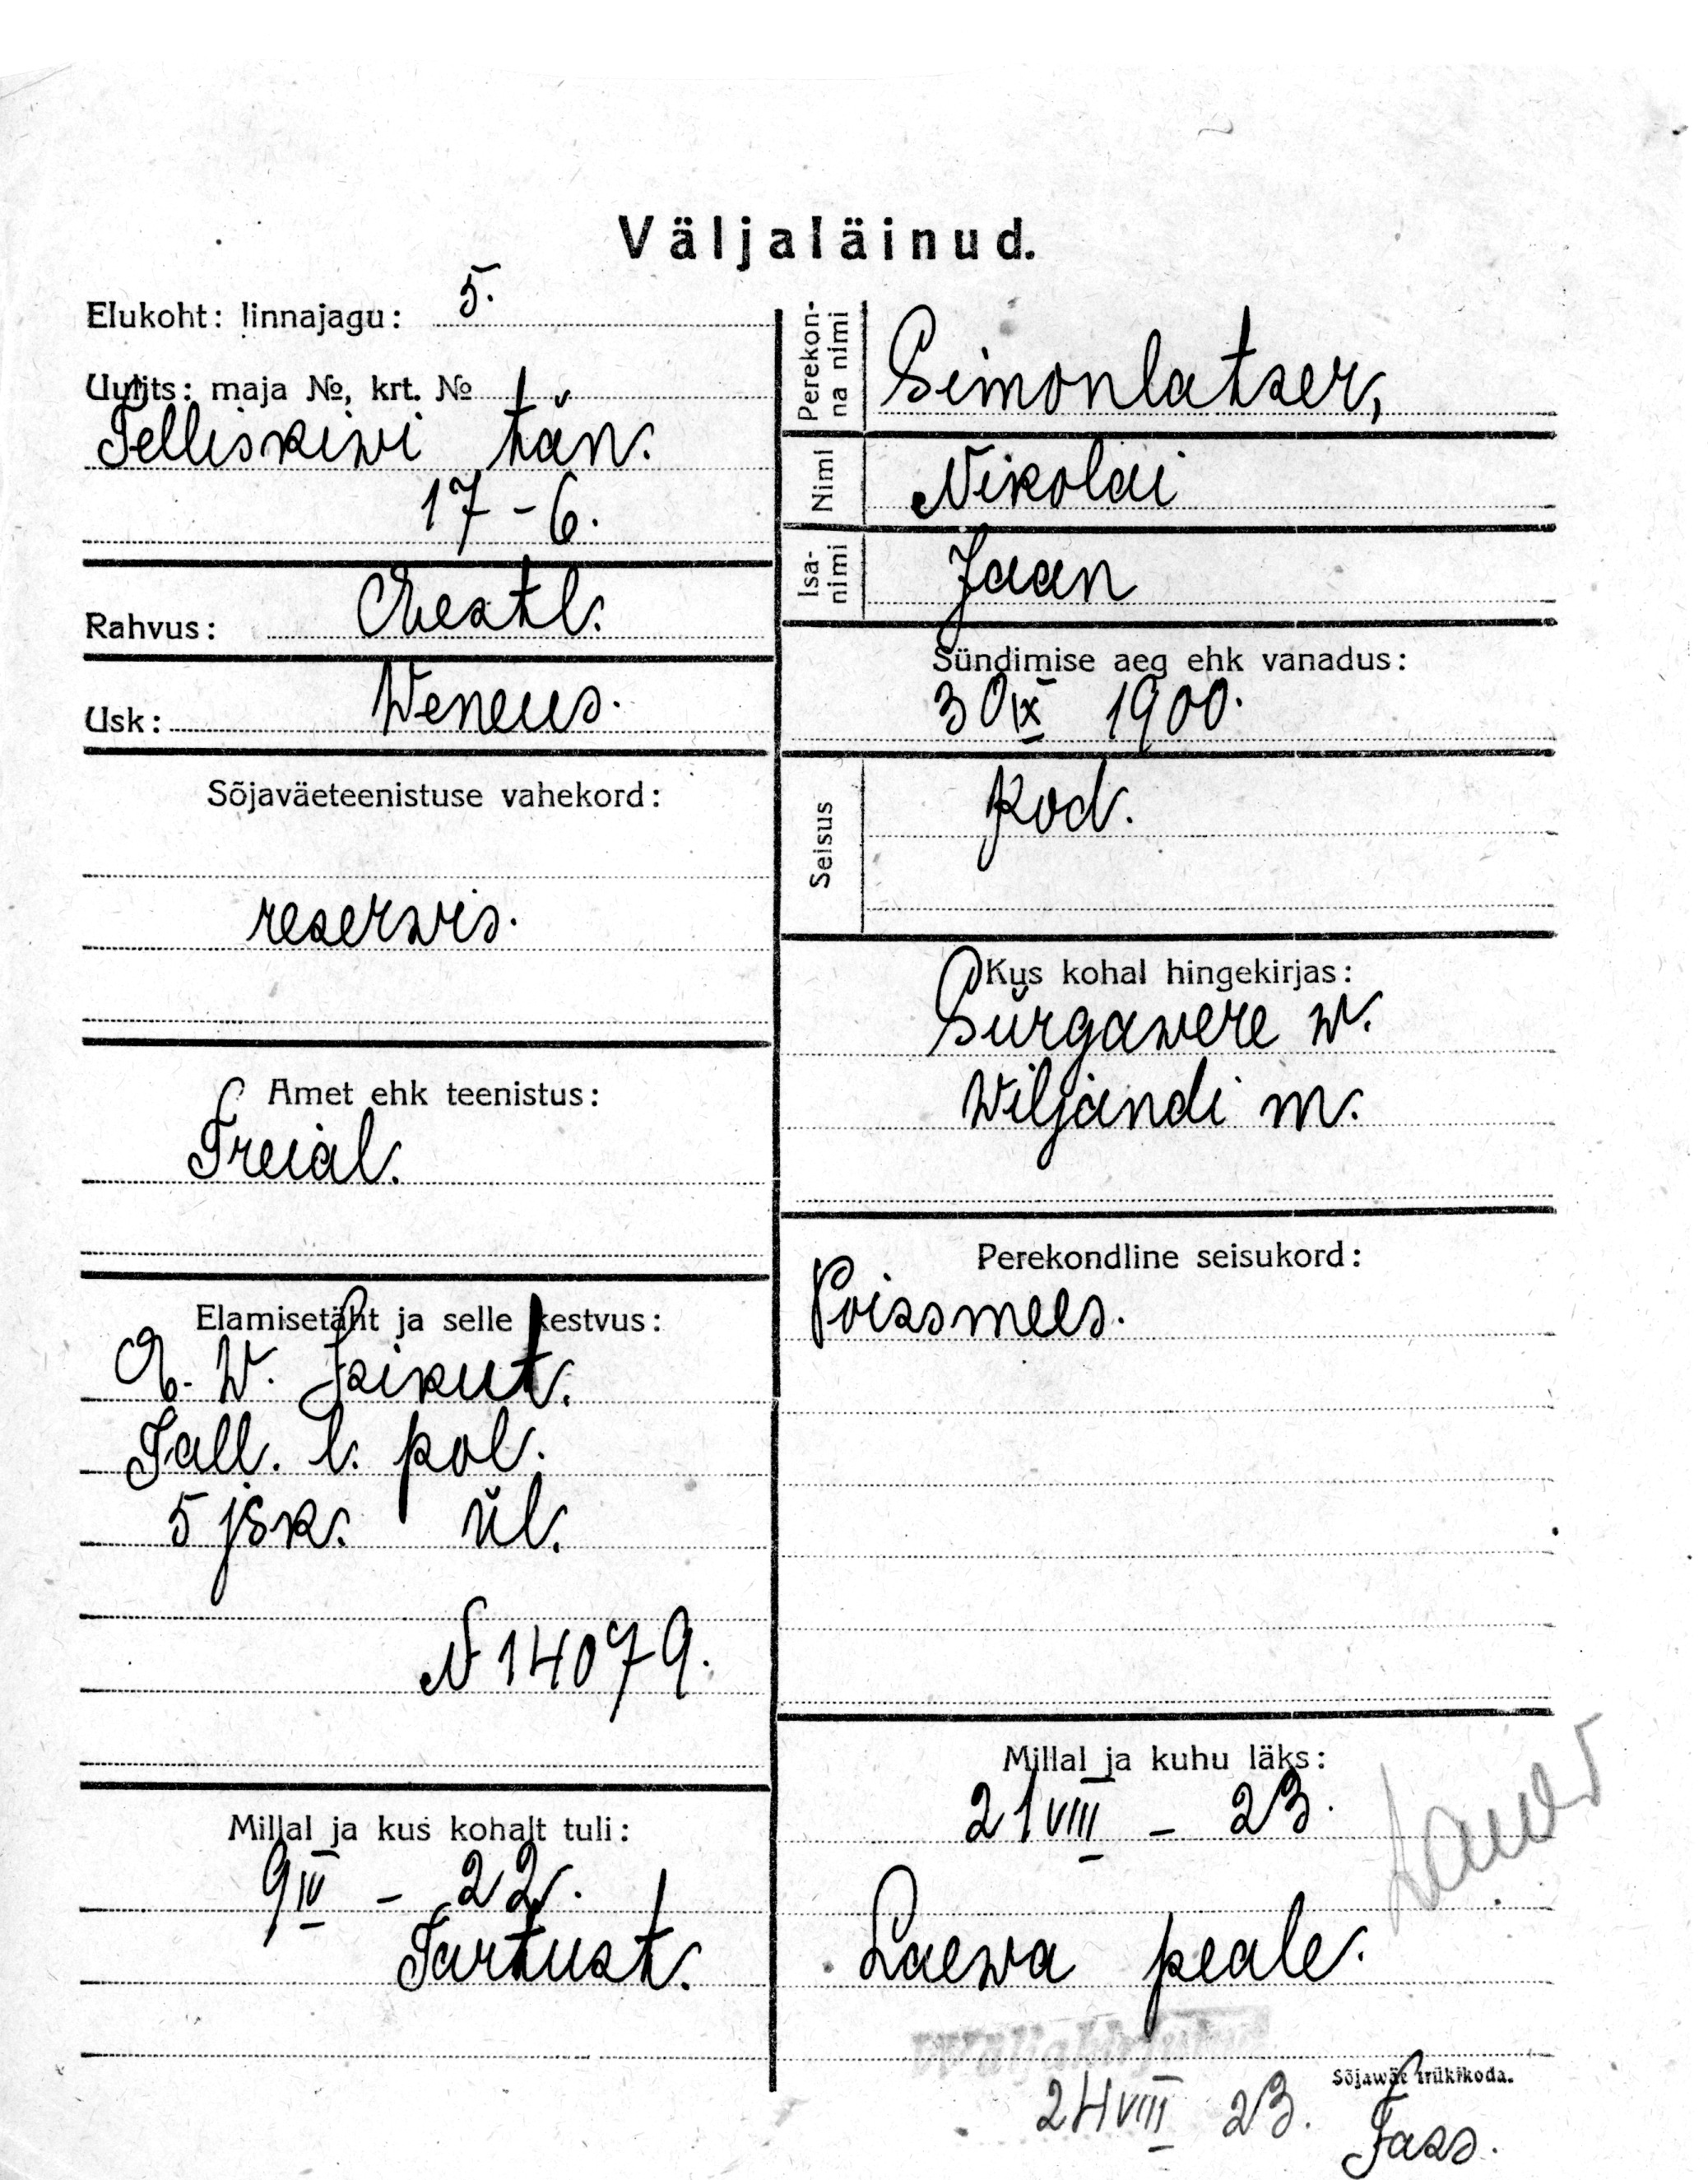 Väljaläinud.
Elukoht: linnajagu: 5.
Uulits: maja №, krt. №
Telliskiwi tän.
17-6.
Rahvus: Eestl.
Usk: Weneus.
Sõjaväeteenistuse vahekord:
reserwis.
Amet ehk teenistus:
Treial.
Elamisetäht ja selle kestvus:
E. W. Isikut.
Tall. l. pol.
5 jsk. ül.
N 14079.
Millal ja kus kohalt tuli:
9 IV - 22.
Tartust.
Perekonna nimi
Simonlatser,
Nimi Nikolai
Isanimi Jaan
Sündimise aeg ehk vanadus:
30 IX 1900.
Seisus kod.
Kus kohal hingekirjas:
Sürgawere w.
Wiljandi m.
Perekondline seisukord:
Poissmees.
Millal ja kuhu läks:
21 VIII - 23.
Laewa peale.
Sõjawäe trükikoda.
24 VIII 23.